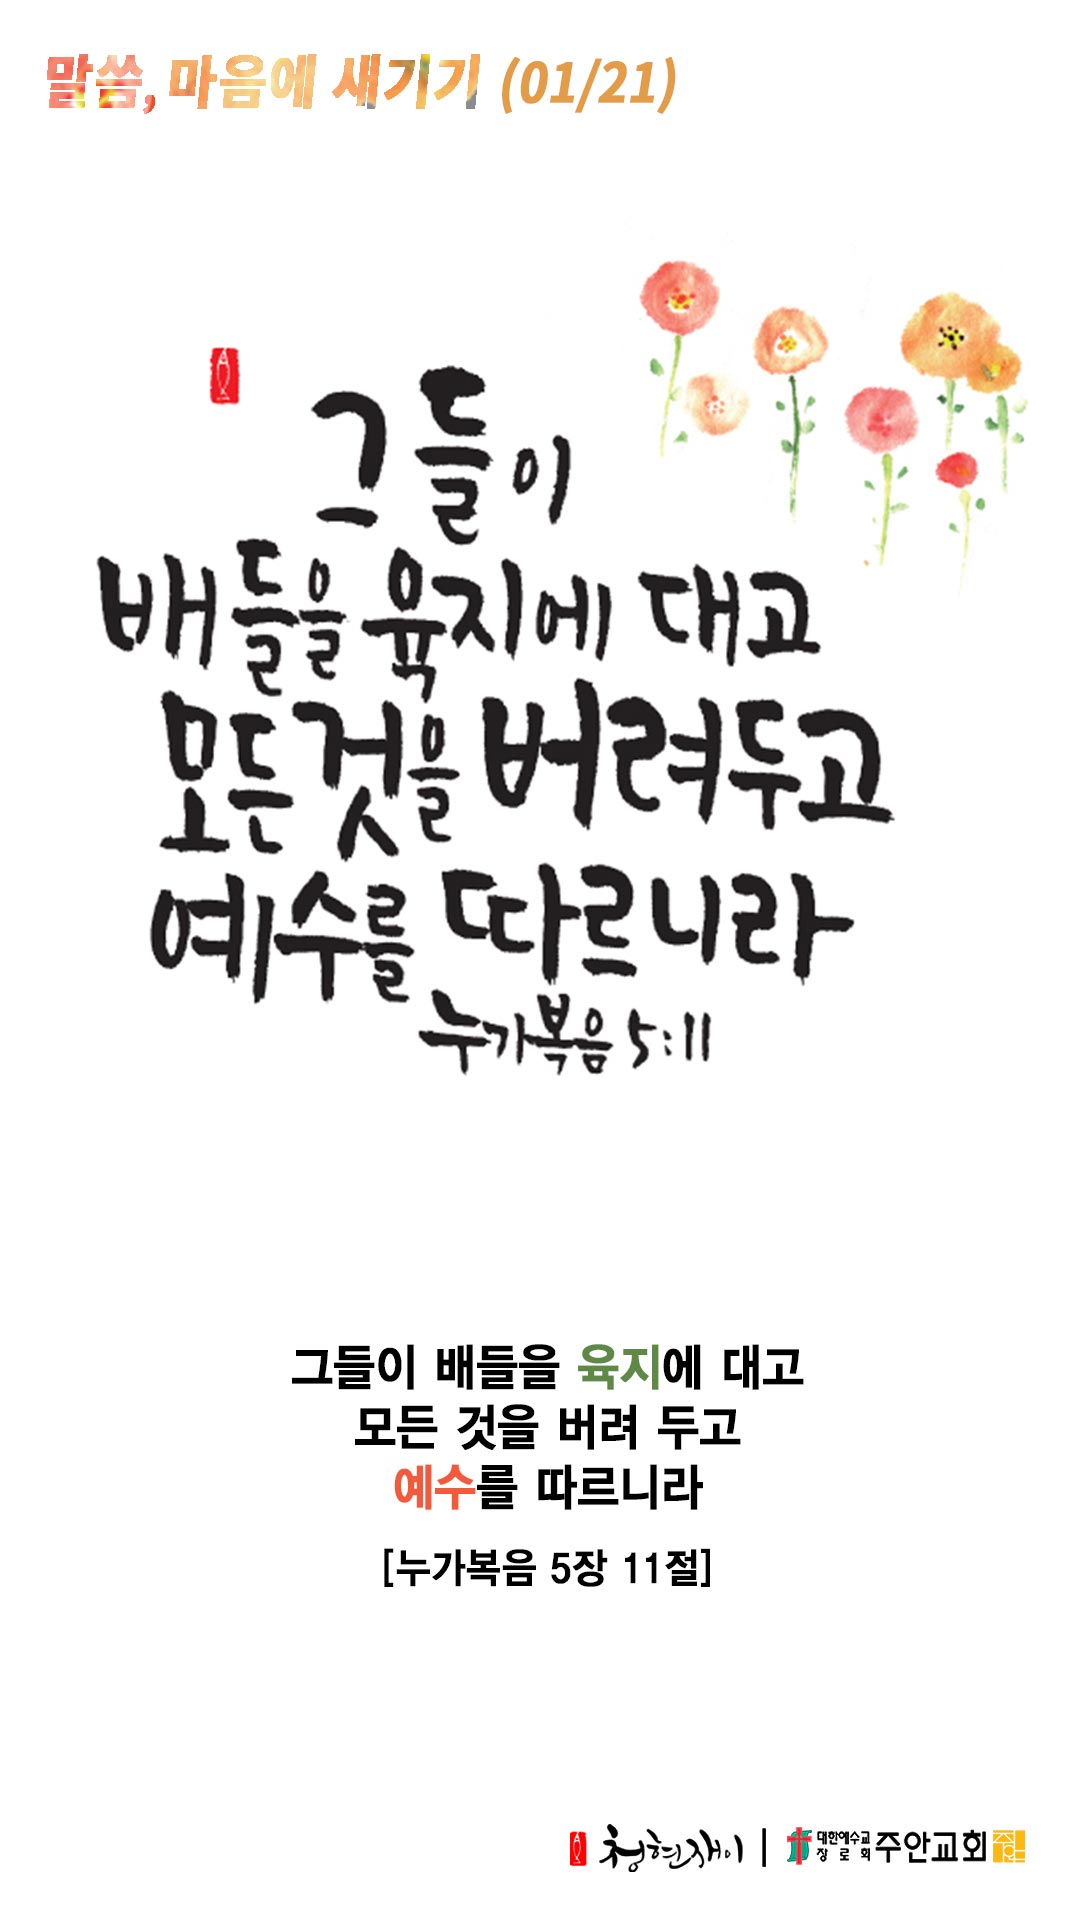 말씀, 마음에 새기기 (01/21)
그들이
배들을 육지에 대고
모든 것을 버려두고
예수를 따르니라
누가복음 5:11
그들이 배들을 육지에 대고
모든 것을 버려 두고
예수를 따르니라
[누가복음 5장 11절]
청현재이 | 대한예수교 장로회 주안교회 주안